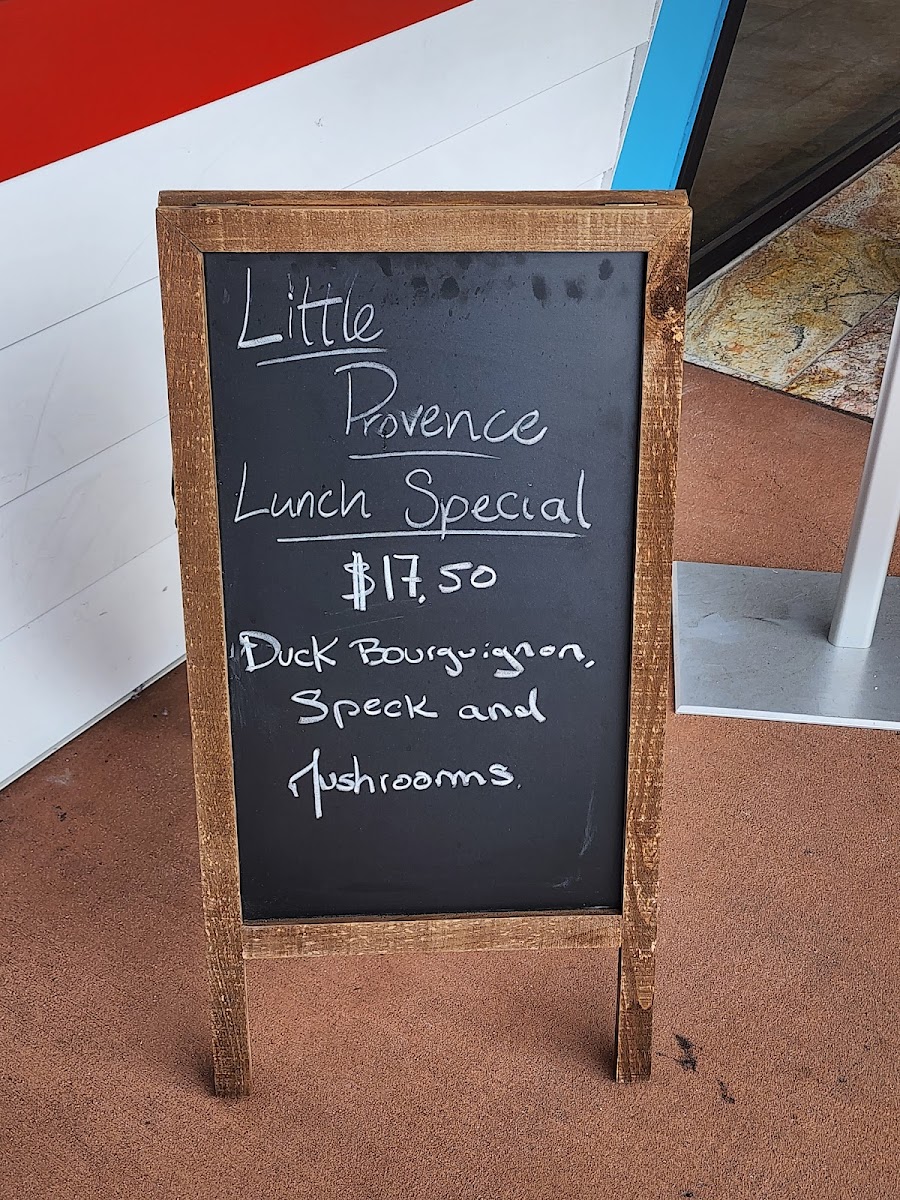 Little
Provence
Lunch Special
$17.50
Duck Bourguignon,
Speck and
Mushrooms.